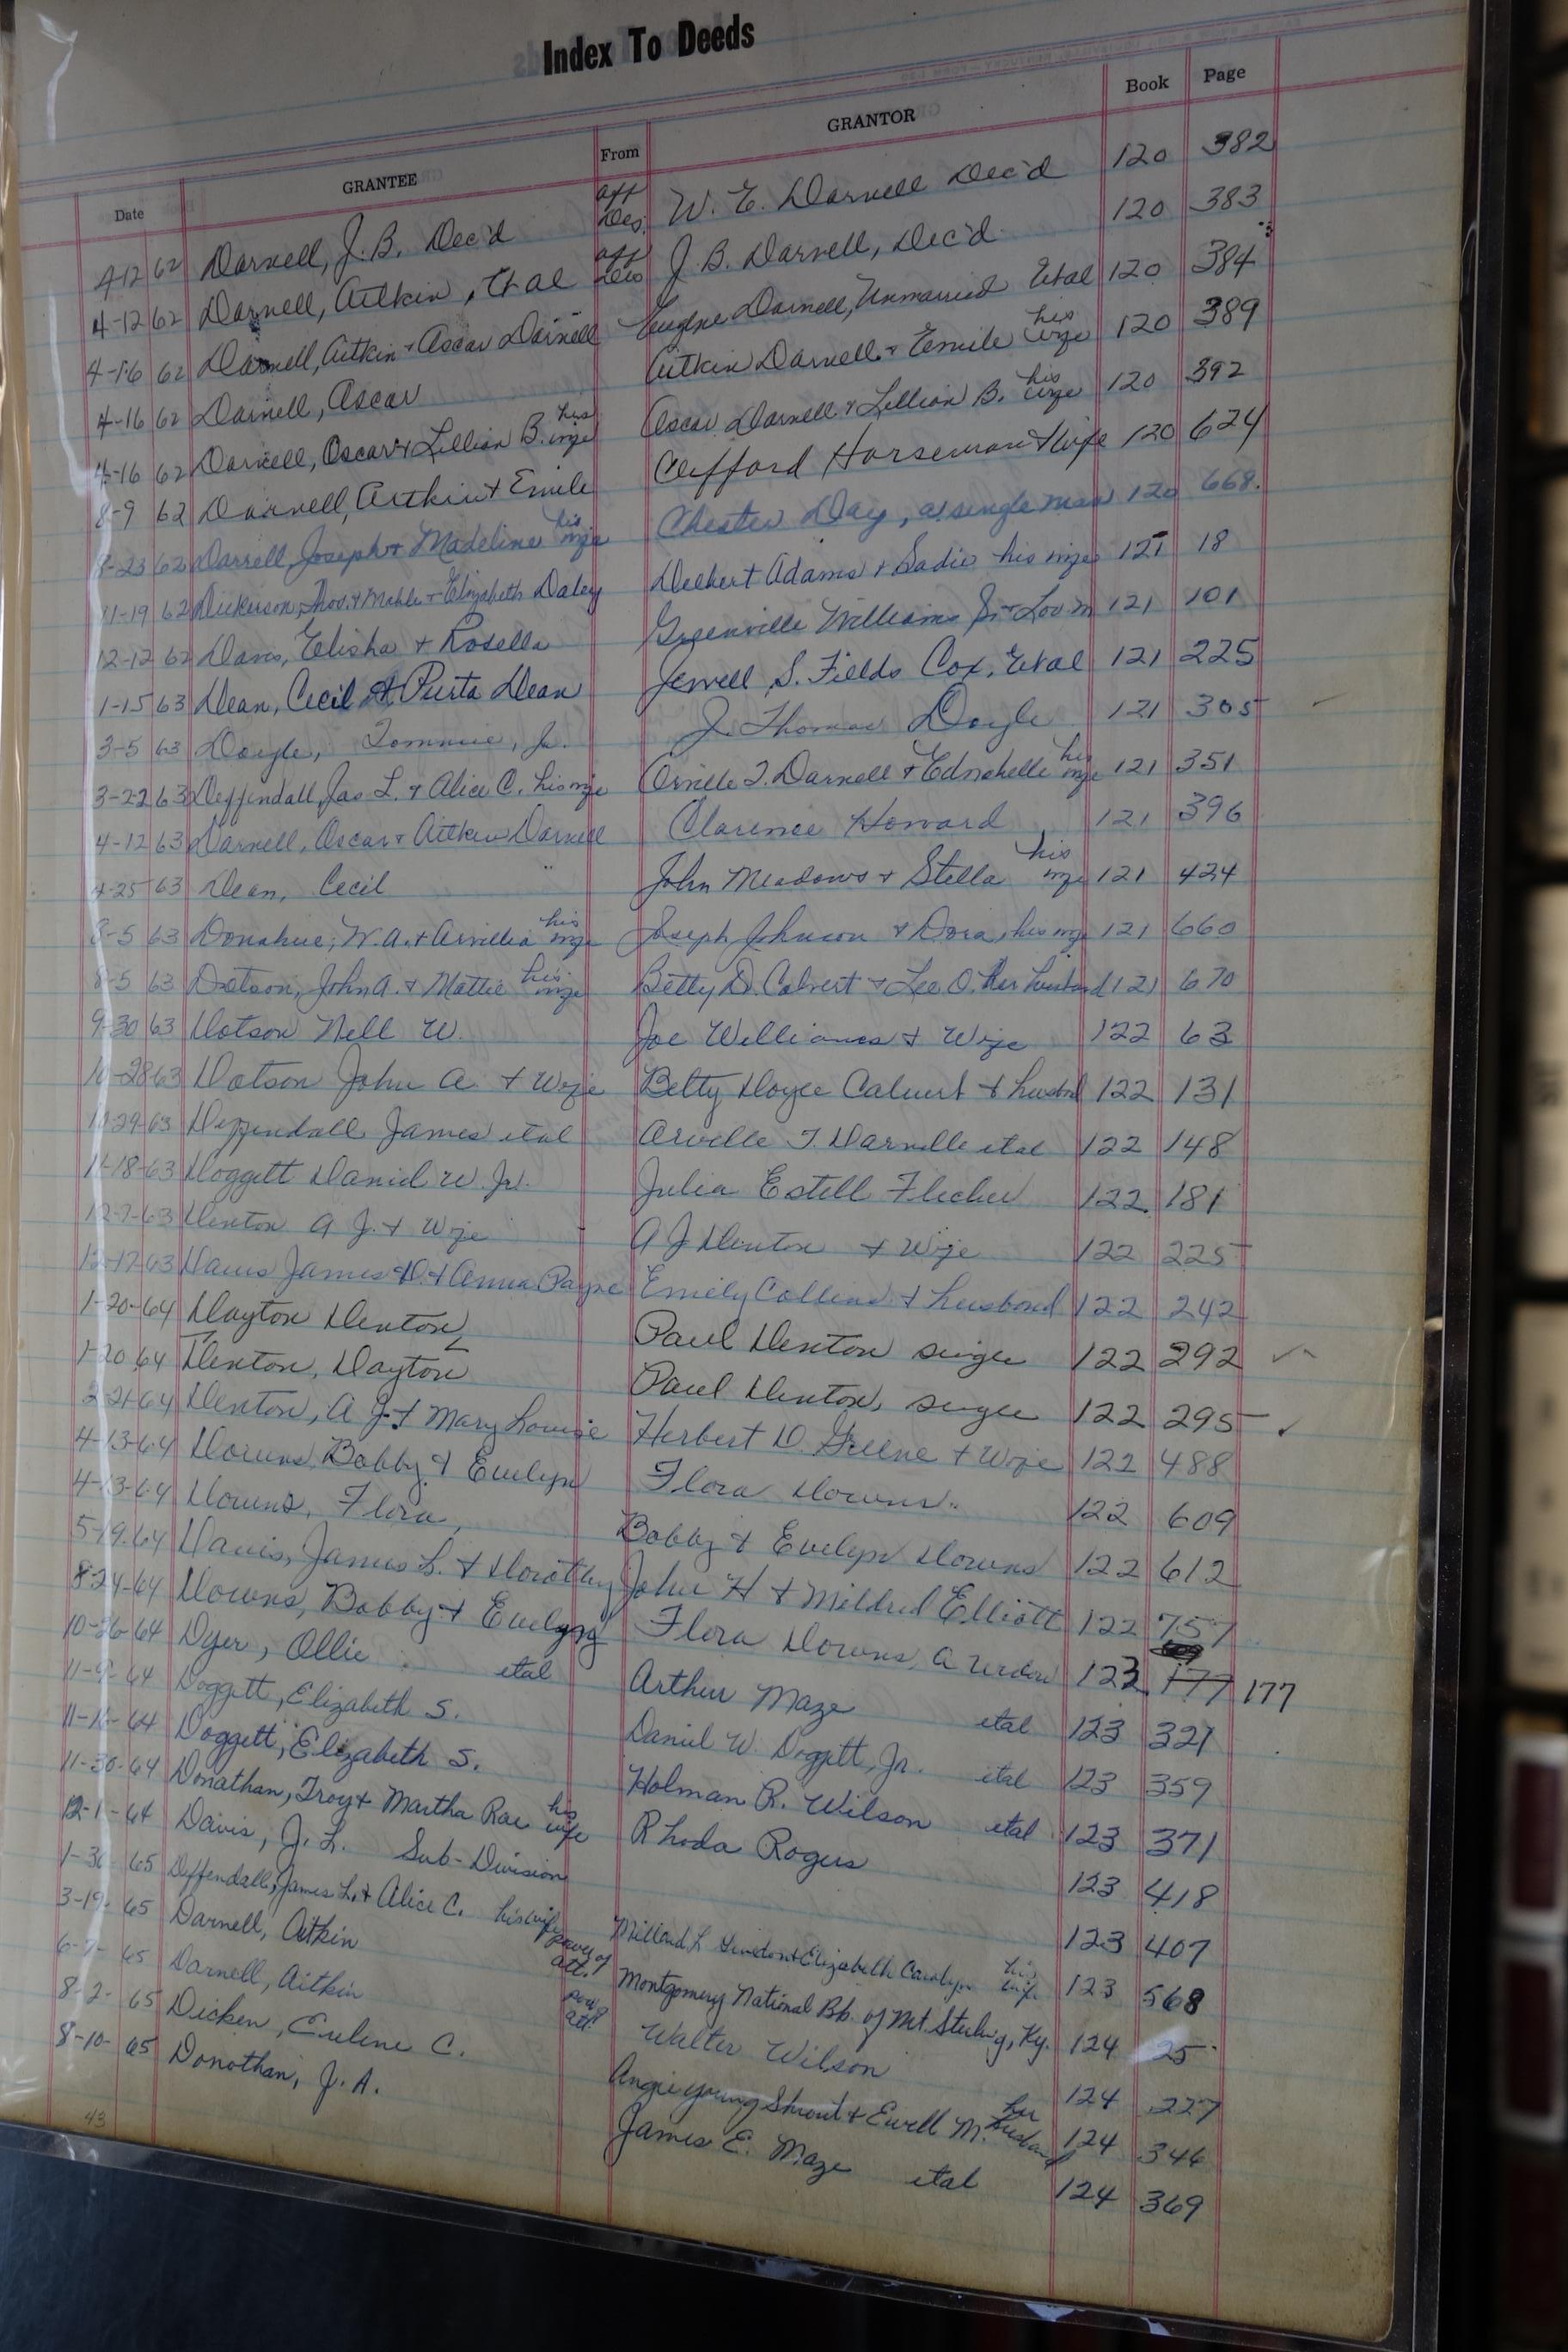 Index To Deeds
Date GRANTEE From GRANTOR Book Page
4-12 62 Darnell, J. B. Dec'd aff Des. W. E. Darnell Dec'd 120 382
4-12 62 Darnell, Aitkin, Et al aff Des J. B. Darnell, Dec'd 120 383
4-16 62 Darnell, Aitkin + Oscar Darnell Eugene Darnell, Unmarried Etal 120 384
4-16 62 Darnell, Oscar Aitkin Darnell + Emile his wife 120 389
4-16 62 Darnell, Oscar + Lillian B. his wife Oscar Darnell + Lillian B. his wife 120 392
8-9 62 Darnell, Aitkin + Emile Clifford Horseman + Wife 120 624
8-23 62 Darrell, Joseph + Madeline his wife Chester Day, a single man 120 668.
11-19 62 Dickerson, Thos. + Mable + Elizabeth Daley Delbert Adams + Sadie his wife 121 18
12-12 62 Davis, Elisha + Rosella Greenville Williams Sr + Lou 121 101
1-15 63 Dean, Cecil + Dean Jewell S. Fields Cox, Etal 121 225
3-5 63 Doyle, Tommie, Jr. J. Thomas Doyle 121 305
3-22 63 Deffendall, Jas L. + Alice C. his wife Orville T. Darnell + Ednabelle his wife 121 351
4-12 63 Darnell, Oscar + Aitken Darnell Clarence Howard 121 396
4-25 63 Dean, Cecil John Meadows + Stella his wife 121 424
8-5 63 Donahue, W. A. + Arvillia his wife Joseph Johnson + Dora, his wife 121 660
8-5 63 Dotson, John A. + Mattie his wife Betty D. Calvert + Lee O. her husband 121 670
9-30 63 Dotson Nell W. Joe Williams + Wife 122 63
10-28 63 Dotson John A. + Wife Betty Doyle Calvert + husbnd 122 131
10-29-63 Deffendall James etal Arville T. Darnelle etal 122 148
11-18-63 Doggett Daniel W. Jr. Julia Estell Flecher 122 181
12-7-63 Denton A J. + Wife A J Denton + Wife 122 225
12-17-63 Davis James D. + Anna Payne Emily Collins + husbond 122 242
1-20-64 Dayton Denton Paul Denton single 122 292
1-20-64 Denton, Dayton Paul Denton, single 122 295
2-21-64 Denton, A J. + Mary Louise Herbert D. Greene + Wife 122 488
4-13-64 Downs, Bobby + Evelyn Flora Downs 122 609
4-13-64 Downs, Flora, Bobby + Evelyn Downs 122 612
5-19-64 Davis, James L. + Dorothy John H + Mildred Elliott 122 757
8-24-64 Downs, Bobby + Evelyn Flora Downs, A Widow 123 177 177
10-26-64 Dyer, Ollie etal Arthur Maze etal 123 321
11-9-64 Doggett, Elizabeth S. Daniel W. Doggett, Jr. etal 123 359
11-16-64 Doggett, Elizabeth S. Holman R. Wilson etal 123 371
11-30-64 Donathan, Troy + Martha Rae his wife Rhoda Rogers 123 418
12-1-64 Davis, J. L. Sub-Division 123 407
1-30-65 Deffendall, James L. + Alice C. his wife Millard L + Elizabeth Carolyn his wife 123 568
3-19-65 Darnell, Aitkin power of att. Montgomery National Bk. of Mt. Sterling, Ky. 124 25
6-7-65 Darnell, Aitkin pow att. Walter Wilson 124 227
8-2-65 Dicken, Eulene C. Angie Young Shrout + Ewell M. her husband 124 346
8-10-65 Donothan, J. A. James E. Maze etal 124 369
43